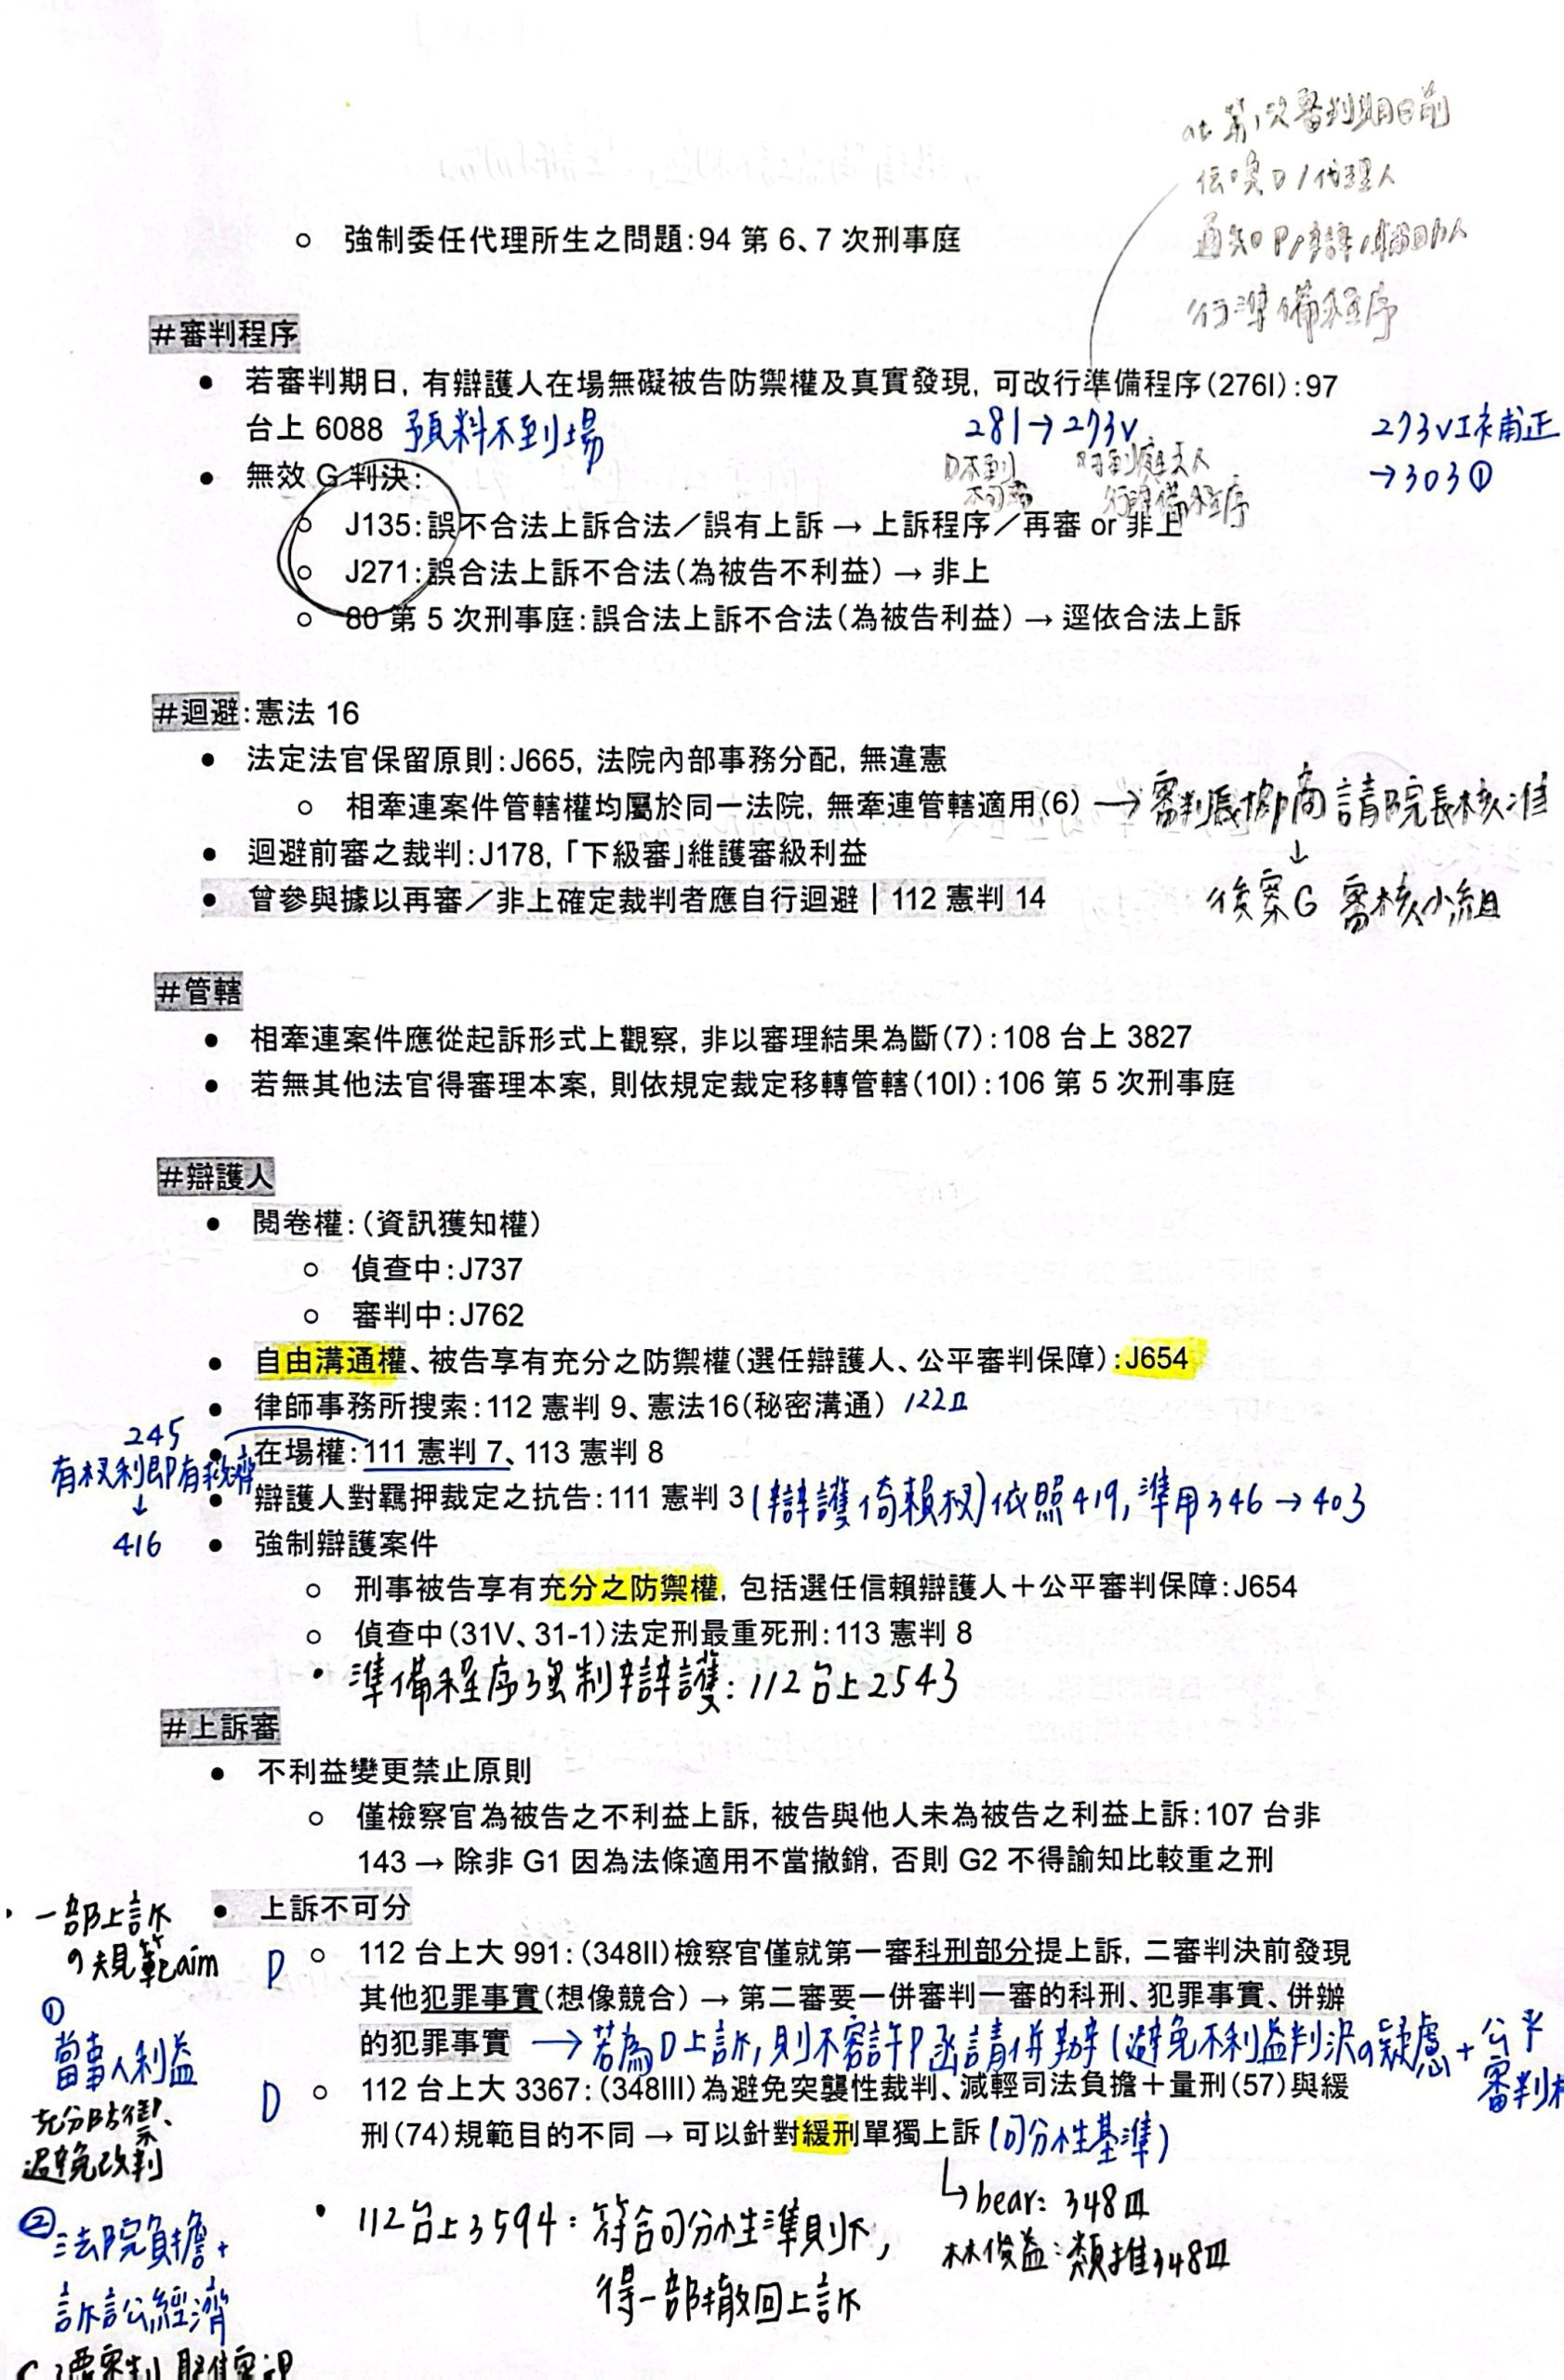 at 第1次審判期日前
傳喚D/代理人
通知P/辯/輔助人
行準備程序
○ 強制委任代理所生之問題:94 第 6、7 次刑事庭
#審判程序
● 若審判期日, 有辯護人在場無礙被告防禦權及真實發現, 可改行準備程序(276I):97
台上 6088 預料不到場
281→273V
273VI未補正
→303①
D不到
不可審
對到庭之人
行準備程序
● 無效 G 判決:
○ J135:誤不合法上訴合法/誤有上訴 → 上訴程序/再審 or 非上
○ J271:誤合法上訴不合法(為被告不利益) → 非上
○ 80 第 5 次刑事庭:誤合法上訴不合法(為被告利益) → 逕依合法上訴
#迴避:憲法 16
● 法定法官保留原則:J665, 法院內部事務分配, 無違憲
○ 相牽連案件管轄權均屬於同一法院, 無牽連管轄適用(6) → 審判長協商 請院長核准
↓
後案G 審核小組
● 迴避前審之裁判:J178,「下級審」維護審級利益
● 曾參與據以再審/非上確定裁判者應自行迴避 | 112 憲判 14
#管轄
● 相牽連案件應從起訴形式上觀察, 非以審理結果為斷(7):108 台上 3827
● 若無其他法官得審理本案, 則依規定裁定移轉管轄(10I):106 第 5 次刑事庭
#辯護人
● 閱卷權:(資訊獲知權)
○ 偵查中:J737
○ 審判中:J762
● 自由溝通權、被告享有充分之防禦權(選任辯護人、公平審判保障):J654
● 律師事務所搜索:112 憲判 9、憲法16(秘密溝通) 122II
● 在場權:111 憲判 7、113 憲判 8
245
有权利即有救濟
↓
416
● 辯護人對羈押裁定之抗告:111 憲判 3 (辯護倚賴权)依照419, 準用346→403
● 強制辯護案件
○ 刑事被告享有充分之防禦權, 包括選任信賴辯護人+公平審判保障:J654
○ 偵查中(31V、31-1)法定刑最重死刑:113 憲判 8
• 準備程序強制辯護: 112台上2543
#上訴審
● 不利益變更禁止原則
○ 僅檢察官為被告之不利益上訴, 被告與他人未為被告之利益上訴:107 台非
143 → 除非 G1 因為法條適用不當撤銷, 否則 G2 不得諭知比較重之刑
● 上訴不可分
P ○ 112 台上大 991:(348II)檢察官僅就第一審科刑部分提上訴, 二審判決前發現
其他犯罪事實(想像競合) → 第二審要一併審判一審的科刑、犯罪事實、併辦
的犯罪事實 → 若為D上訴, 則不容許P函請併辦 (避免不利益判決の疑慮+公平
審判
D ○ 112 台上大 3367:(348III)為避免突襲性裁判、減輕司法負擔+量刑(57)與緩
刑(74)規範目的不同 → 可以針對緩刑單獨上訴 (可分性基準)
bear: 348III
林俊益: 類推348III
• 112台上3594: 符合可分性準則下,
得一部撤回上訴
• 一部上訴
の規範aim
①
當事人利益
充分防禦、
避免改判
② 法院負擔+
訴訟經濟